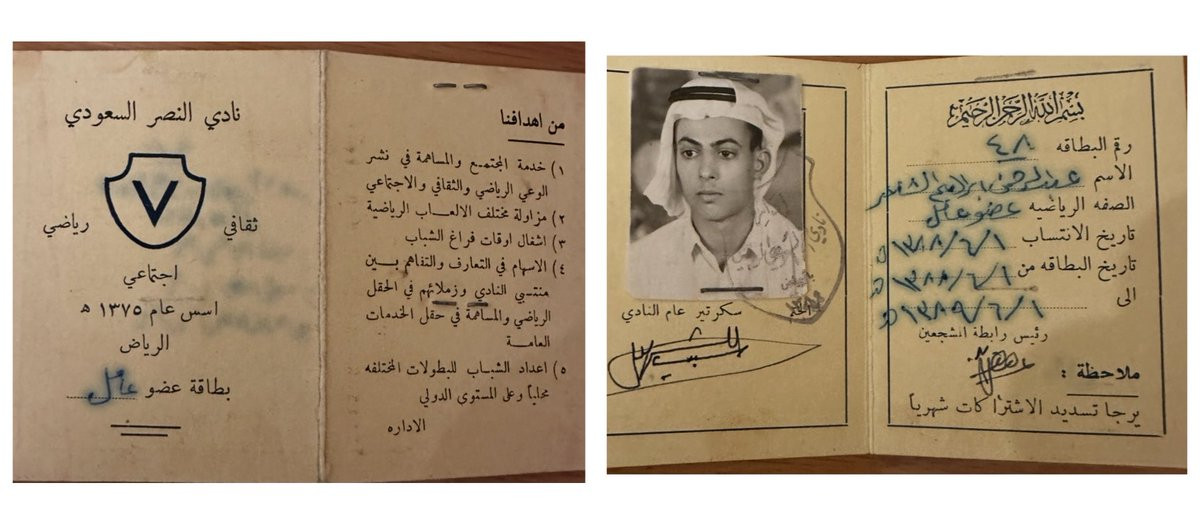 نادي النصر السعودي
V
ثقافي
رياضي
اجتماعي
اسس عام ١٣٧٥ ه
الرياض
بطاقة عضو عامل
من اهدافنا
١) خدمة المجتمع والمساهمة في نشر
الوعي الرياضي والثقافي والاجتماعي
٢) مزاولة مختلف الالعاب الرياضية
٣) اشغال اوقات فراغ الشباب
٤) الاسهام في التعارف والتفاهم بين
منتسبي النادي وزملائهم في الحقل
الرياضي والمساهمة في حقل الخدمات
العامة
٥) اعداد الشباب للبطولات المختلفه
محلياً وعلى المستوى الدولي
الاداره
بسم الله الرحمن الرحيم
رقم البطاقه ٤٠٨
الاسم عبدالرحمن ابراهيم
الصفه الرياضيه عضو عامل
تاريخ الانتساب ١٣٨٨/٦/١ ه
تاريخ البطاقه من ١٣٨٨/٦/١ ه
الى ١٣٨٩/٦/١ ه
رئيس رابطة المشجعين
ملاحظة :
يرجا تسديد الاشتراكات شهرياً
نادي
الختم
سكرتير عام النادي